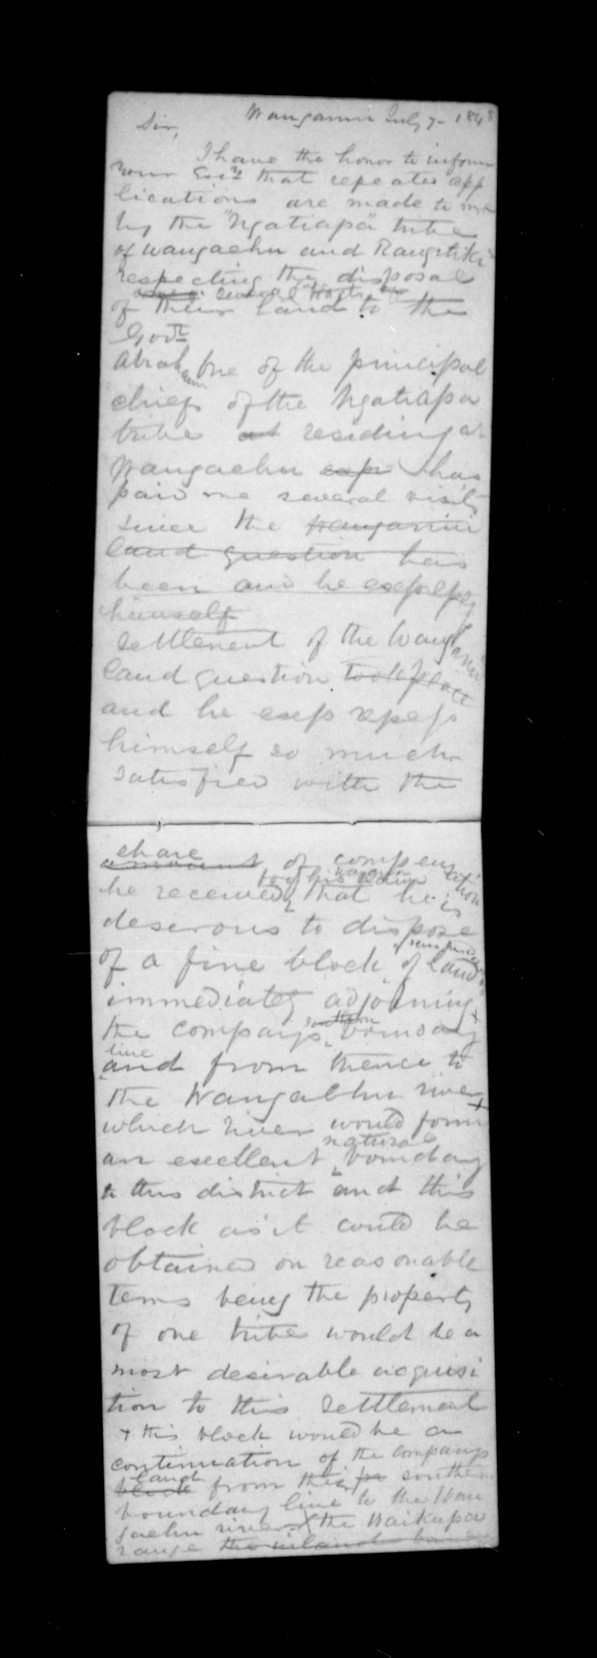 Wanganui July 7- 1848
Sir,
I have the honor to inform
your Excy that repeated app
lications are made to me
by the "Ngatiapa" tribe
of Wangaehu and Rangitiki
respecting the disposal
several
of their land to the
Govt
Abraham One of the principal
chiefs of the Ngatiapa
tribe at residing at
Wangaehu has
paid me several visits
since the Wanganui
land question has
been and he expresses
himself
settlement of the Wanganui
land question took place
and he express
himself so much
satisfied with the
share
amount of compensation
to his
he received that he is
deserous to dispose
of a fine block of land
immediately adjoining
southern
the companys boundary
line
and from thence to
the Wangaehu river
which river would form
natural
an excellent boundary
to this district and this
block as it could be
obtained on reasonable
terms being the property
of one tribe would be a
most desirable acquisi
tion to this settlement
+ this block would be a
continuation of the companys
block from the southern
boundary line to the Wan
gaehu river + the Waikupa
range the inland